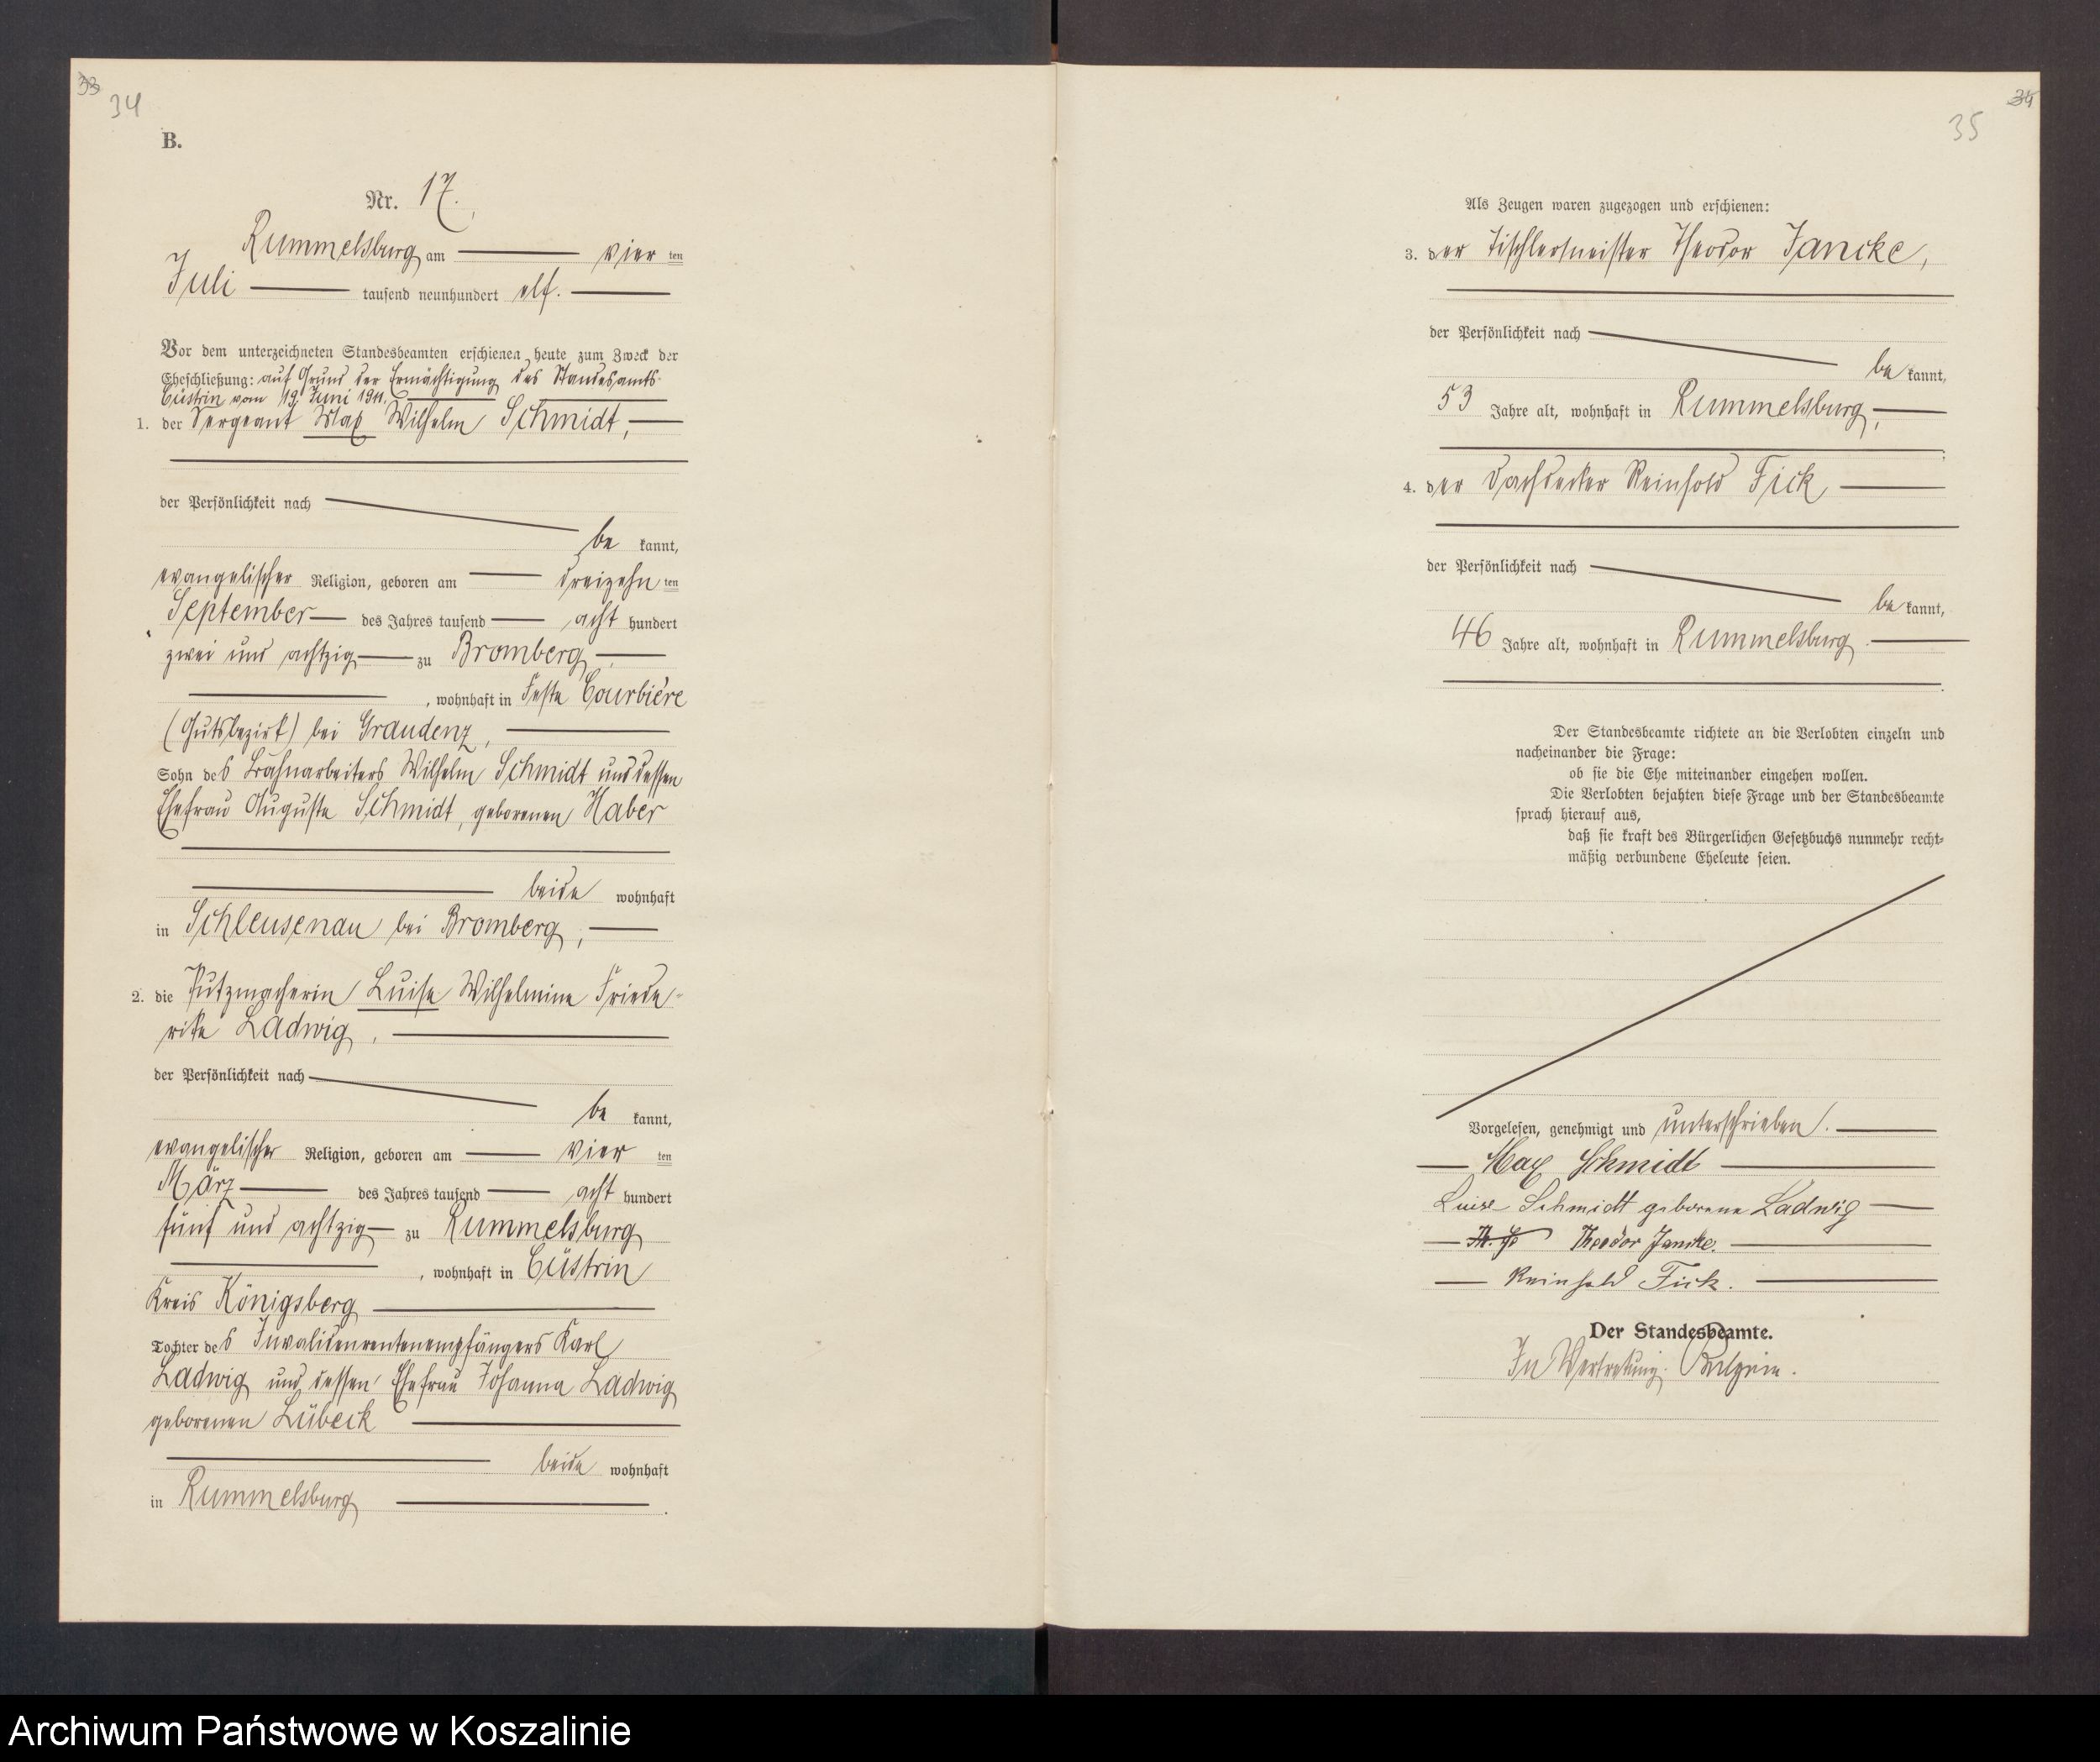 33
34
B.
Nr. 17.
Rummelsburg am vier ten
Juli tausend neunhundert elf.
Vor dem unterzeichneten Standesbeamten erschienen heute zum Zweck der
Eheschließung: auf Grund der Ermächtigung des Standesamts
Cüstrin vom 19. Juni 1911.
1. der Sergeant Max Wilhelm Schmidt,
der Persönlichkeit nach
be kannt,
evangelischer Religion, geboren am dreizehn ten
September des Jahres tausend acht hundert
zwei und achtzig zu Bromberg,
, wohnhaft in Feste Courbière
(Gutsbezirk) bei Graudenz,
Sohn des Wilhelm Schmidt und dessen
Ehefrau Auguste Schmidt, geborenen Haber
beide wohnhaft
in Schleusenau bei Bromberg;
2. die Putzmacherin Luise Wilhelmine Friede-
rike Ladwig,
der Persönlichkeit nach
be kannt,
evangelischer Religion, geboren am vier ten
März des Jahres tausend acht hundert
fünf und achtzig zu Rummelsburg
, wohnhaft in Cüstrin
Kreis Königsberg
Tochter des Invalidenrentenempfängers Karl
Ladwig und dessen Ehefrau Johanna Ladwig
geborenen Lübeck
beide wohnhaft
in Rummelsburg
34
35
Als Zeugen waren zugezogen und erschienen:
3. der Tischlermeister Theodor Jancke,
der Persönlichkeit nach
be kannt,
53 Jahre alt, wohnhaft in Rummelsburg,
;
4. der Dachdecker Reinhold Fick
der Persönlichkeit nach
be kannt,
46 Jahre alt, wohnhaft in Rummelsburg.
Der Standesbeamte richtete an die Verlobten einzeln und
nacheinander die Frage:
ob sie die Ehe miteinander eingehen wollen.
Die Verlobten bejahten diese Frage und der Standesbeamte
sprach hierauf aus,
daß sie kraft des Bürgerlichen Gesetzbuchs nunmehr recht-
mäßig verbundene Eheleute seien.
Vorgelesen, genehmigt und unterschrieben.
Max Schmidt
Luise Schmidt geborene Ladwig
Theodor Jancke.
Reinhold Fick.
Der Standesbeamte.
In Vertretung.
Archiwum Państwowe w Koszalinie